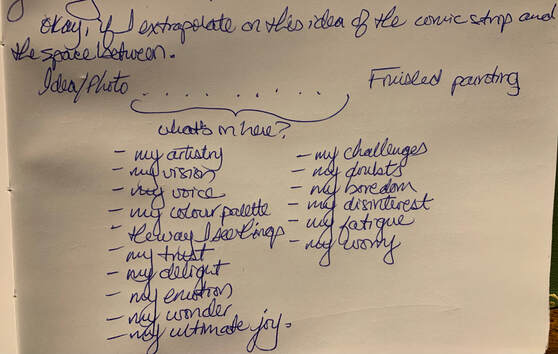 okay, if I extrapolate on this idea of the comic strip and
the space between.
Idea/Photo . . . . . . . . Finished painting
what's in here?
- my artistry
- my vision
- my voice
- my colour palette
- the way I see things
- my trust
- my delight
- my emotion
- my wonder
- my ultimate joy.
- my challenges
- my doubts
- my boredom
- my disinterest
- my fatigue
- my worry